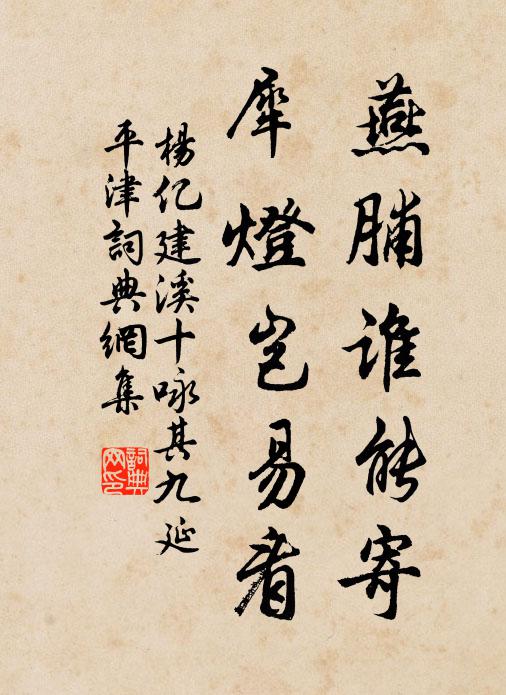 燕脯谁能寄
犀燈岂易看
楊亿建溪十咏其九延
平津詞典網集
詞典
网印